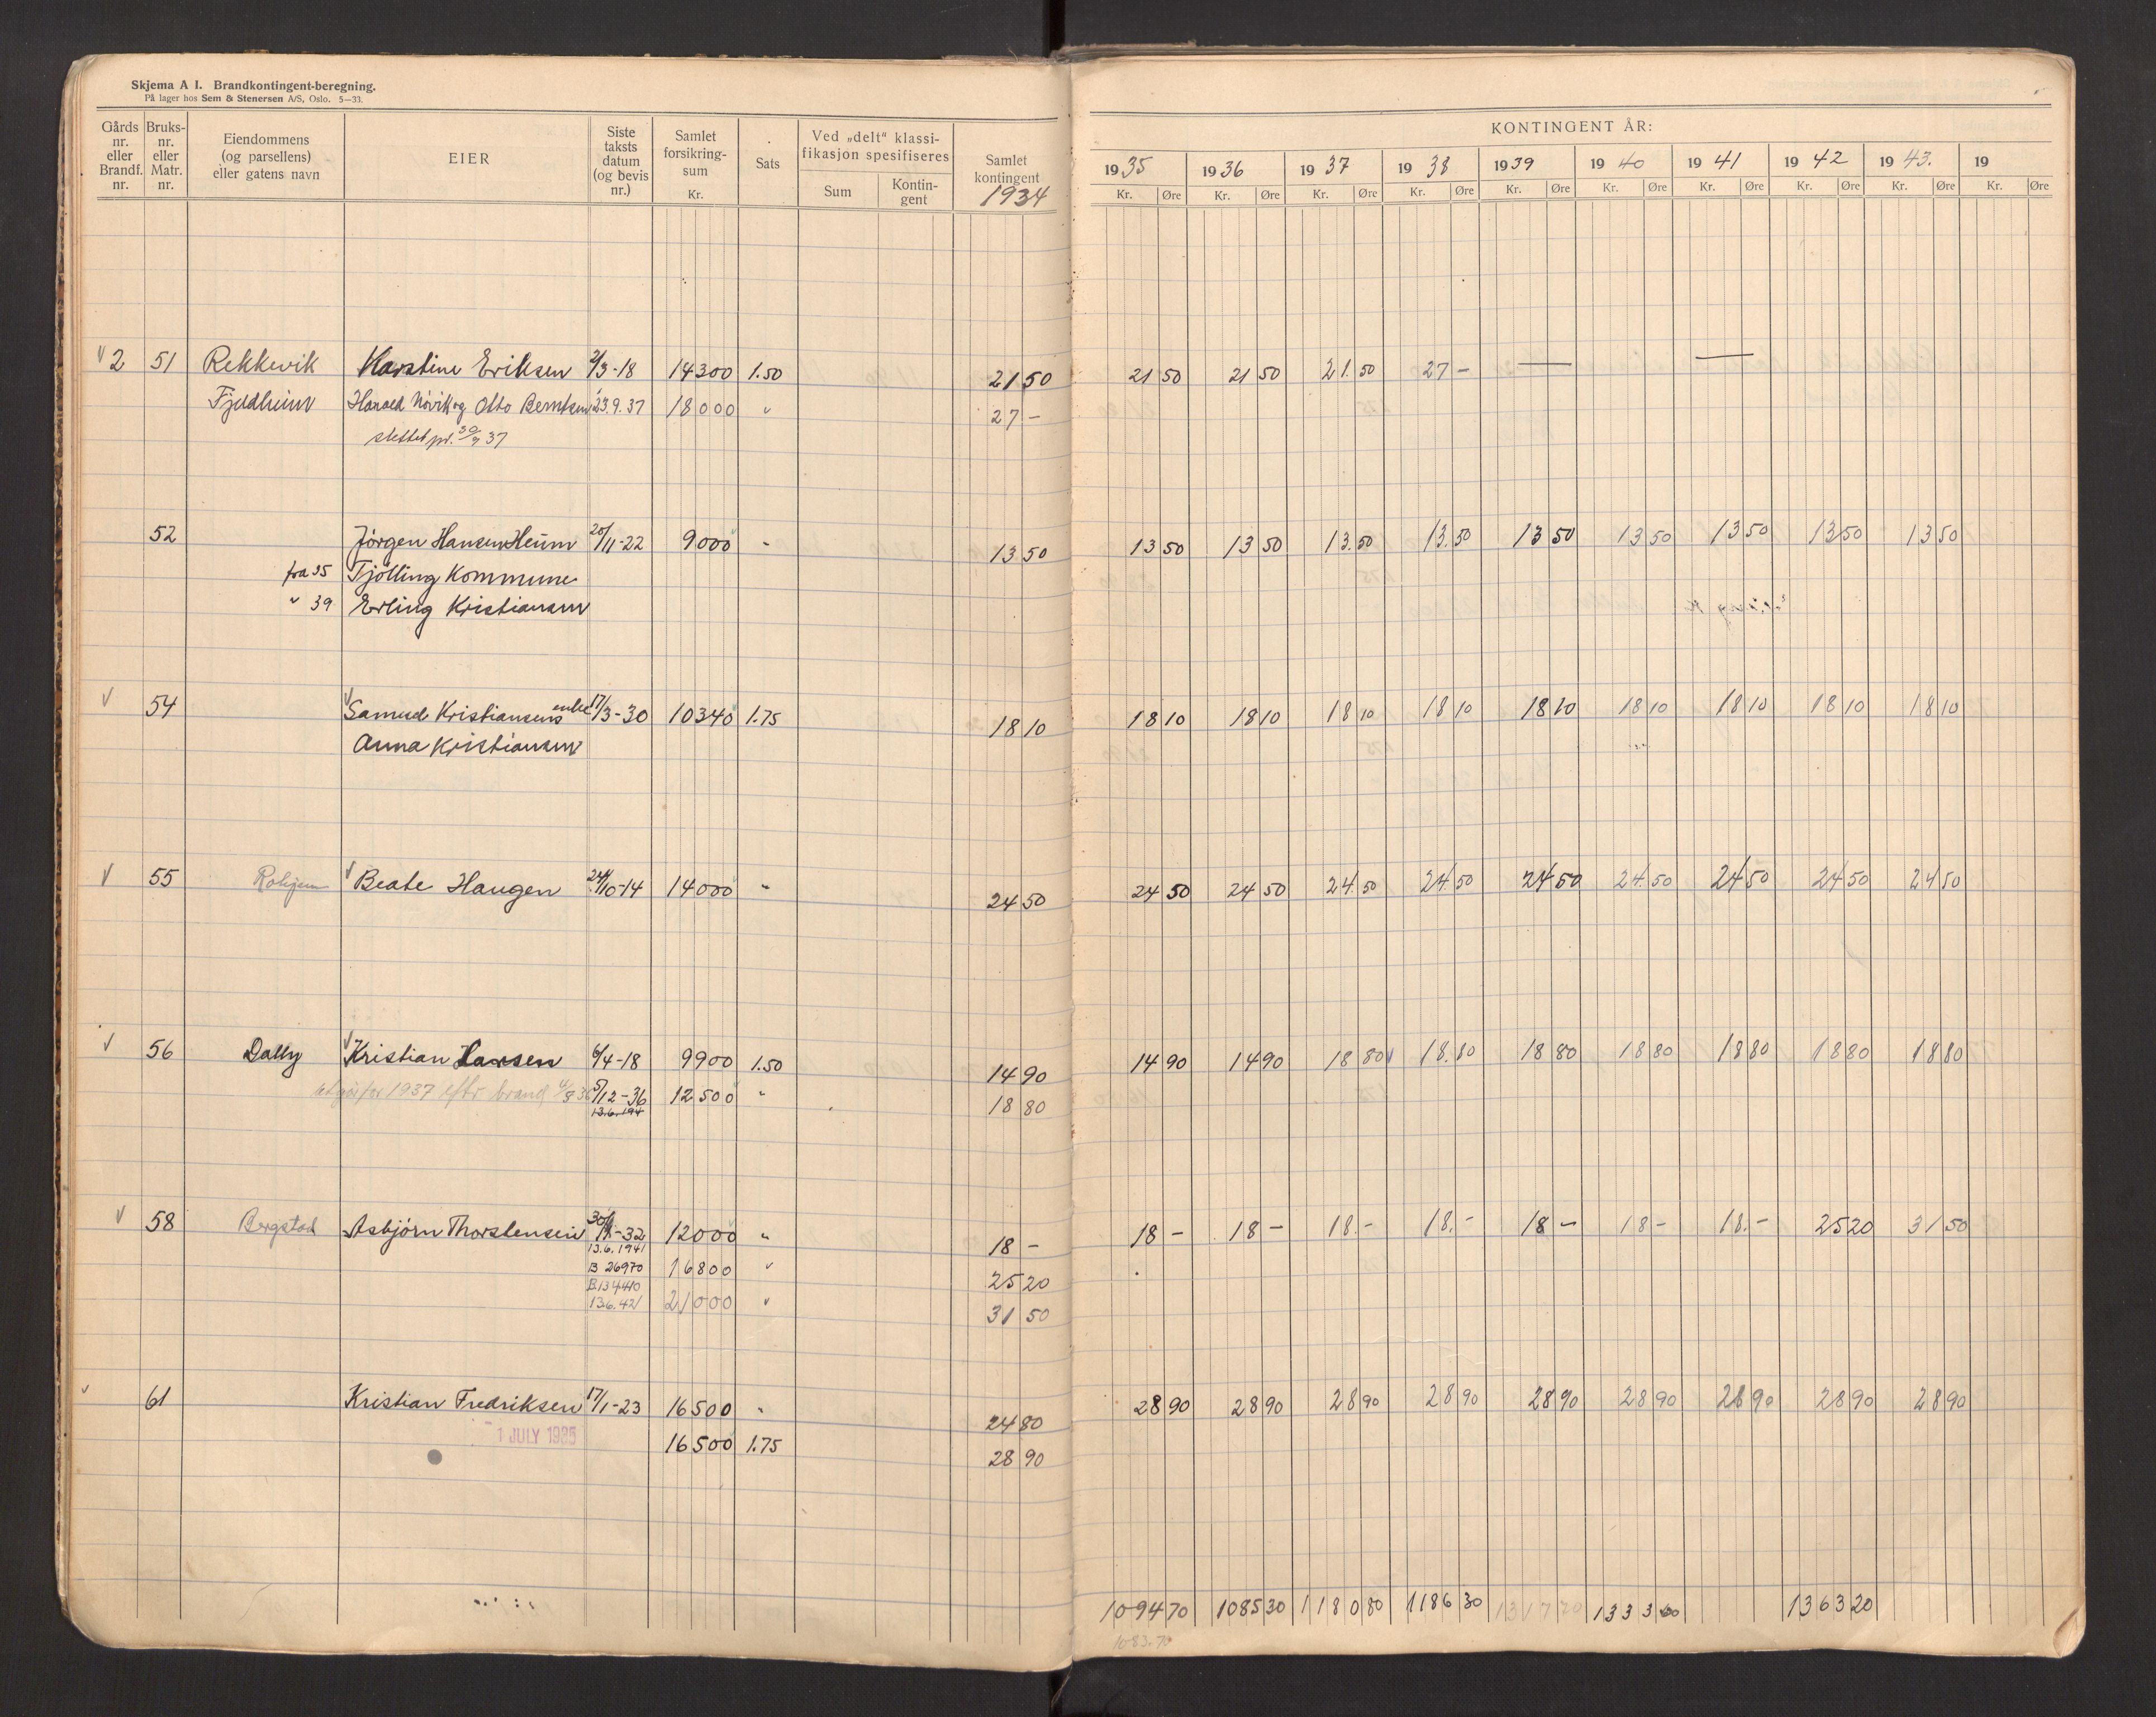 Skjema A I. Brandkontingent-beregning.
På lager hos Sem & Stenersen A/S, Oslo. 5—33.
Gårds nr. eller Brandf. nr.
Bruks- nr. eller Matr. nr.
Eiendommens (og parsellens) eller gatens navn
EIER
Siste taksts datum (og bevis nr.)
Samlet forsikring- sum Kr.
Sats
Ved „delt" klassi- fikasjon spesifiseres
Sum
Kontin- gent
Samlet kontingent 1934
KONTINGENT ÅR:
1935 1936 1937 1938 1939 1940 1941 1942 1943. 19
Kr. Øre Kr. Øre Kr. Øre Kr. Øre Kr. Øre Kr. Øre Kr. Øre Kr. Øre Kr. Øre Kr. Øre
√ 2 51 Rekkevik Karstine Eriksen 2/3-18 14300 1.50 21 50 21 50 21 50 21.50 27 - — —
Fjeldheim Harald Növik og Otto Berntsen 23.9.37 18000 " 27 -
slettet pr. 30/9 37
52 Jörgen Hansen Heum 20/11-22 9000 " 13 50 13 50 13 50 13.50 13.50 13 50 13 50 13 50 13 50 13 50
fra 35 Tjölling Kommune
" 39 Erling Kristiansen
√ 54 √ Samuel Kristiansens enke 17/3-30 10340 1.75 18 10 18 10 18 10 18 10 18 10 18 10 18 10 18 10 18 10 18 10
Anna Kristiansen
√ 55 √ Beate Haugen 24/10-14 14000 " 24 50 24 50 24 50 24.50 24 50 24 50 24.50 24 50 24 50 24 50
√ 56 Dally √ Kristian Larsen 6/4-18 9900 1.50 14 90 14 90 14 90 18 80 √ 18.80 18 80 18 80 18 80 18 80 18 80
1937 efter brand 5/12-36 12500 " 18 80
13.6.194
√ 58 Bergstad Asbjörn Thorstensen 30/11-32 12000 " 18 - 18 - 18 - 18.- 18.- 18 - 18 - 18.- 25 20 31 50
13.6.1941
B 26970 16800 " 25 20
B.134410
13.6.42 21000 " 31 50
√ 61 Kristian Fredriksen 17/1-23 16500 " 24 80 28 90 28 90 28 90 28 90 28 90 28 90 28 90 28 90 28 90
1 JULY 1935 16500 1.75 28 90
1094 70 1085 30 1180 80 1186 30 1317 70 1333 60 1363 20
1083.70